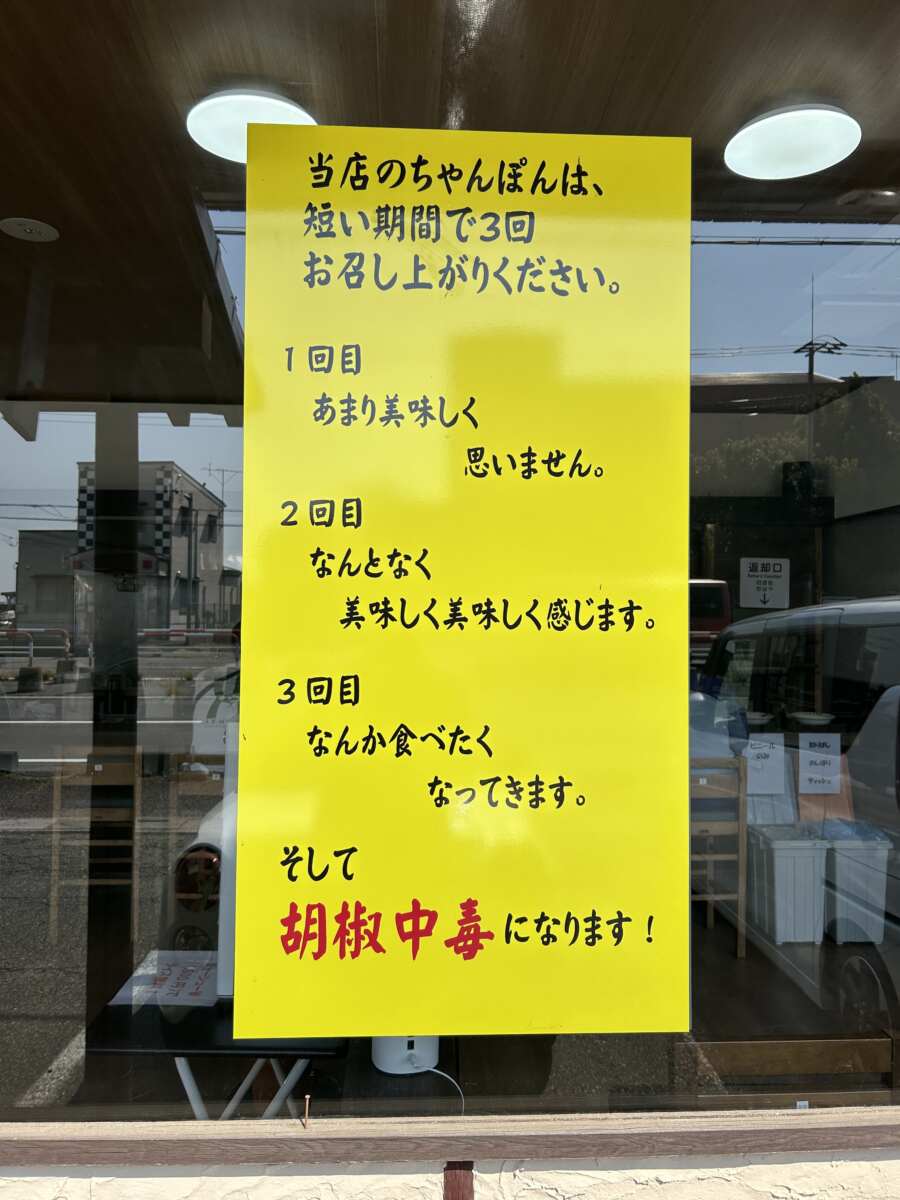 当店のちゃんぽんは、
短い期間で3回
お召し上がりください。
1回目
あまり美味しく
思いません。
2回目
なんとなく
美味しく美味しく感じます。
3回目
なんか食べたく
なってきます。
そして
胡椒中毒になります！
返却口
ビニール
のみ
おしぼり
ティッシュ